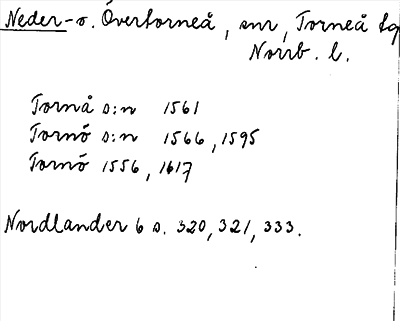 Neder-o. Övertorneå, snr, Torneå tg
Norrb. l.
Tornå s:n 1561
Tornö s:n 1566, 1595
Tornö 1556, 1617
Nordlander 6 s. 320, 321, 333.